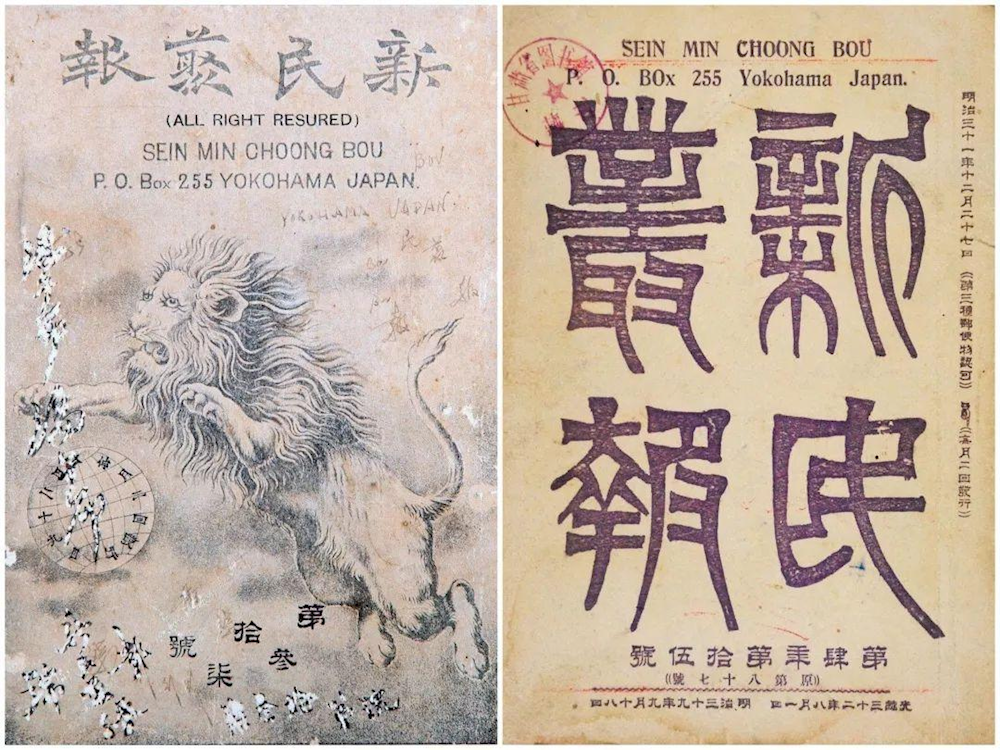 新民藂報
(ALL RIGHT RESURED)
SEIN MIN CHOONG BOU
P. O. Box 255 YOKOHAMA JAPAN.
BOU
YOKOHAMA JAPAN.
第參拾柒號
SEIN MIN CHOONG BOU
P. O. BOx 255 Yokohama Japan.
甘肃省图书馆
新民叢報
明治三十一年十二月二十七日《第三種郵便物認可》《每月二回發行》
第肆秊第拾伍號
《原第八十七號》
光緒三十二年八月一日 明治三十九年九月十八日